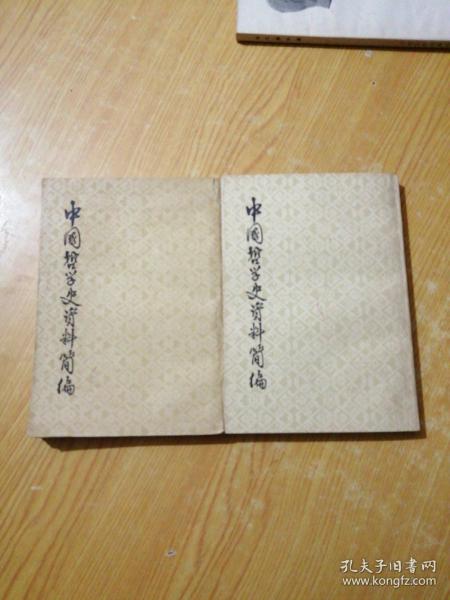 中国哲学史资料简编
中国哲学史资料简编
孔夫子旧书网
www.kongfz.com